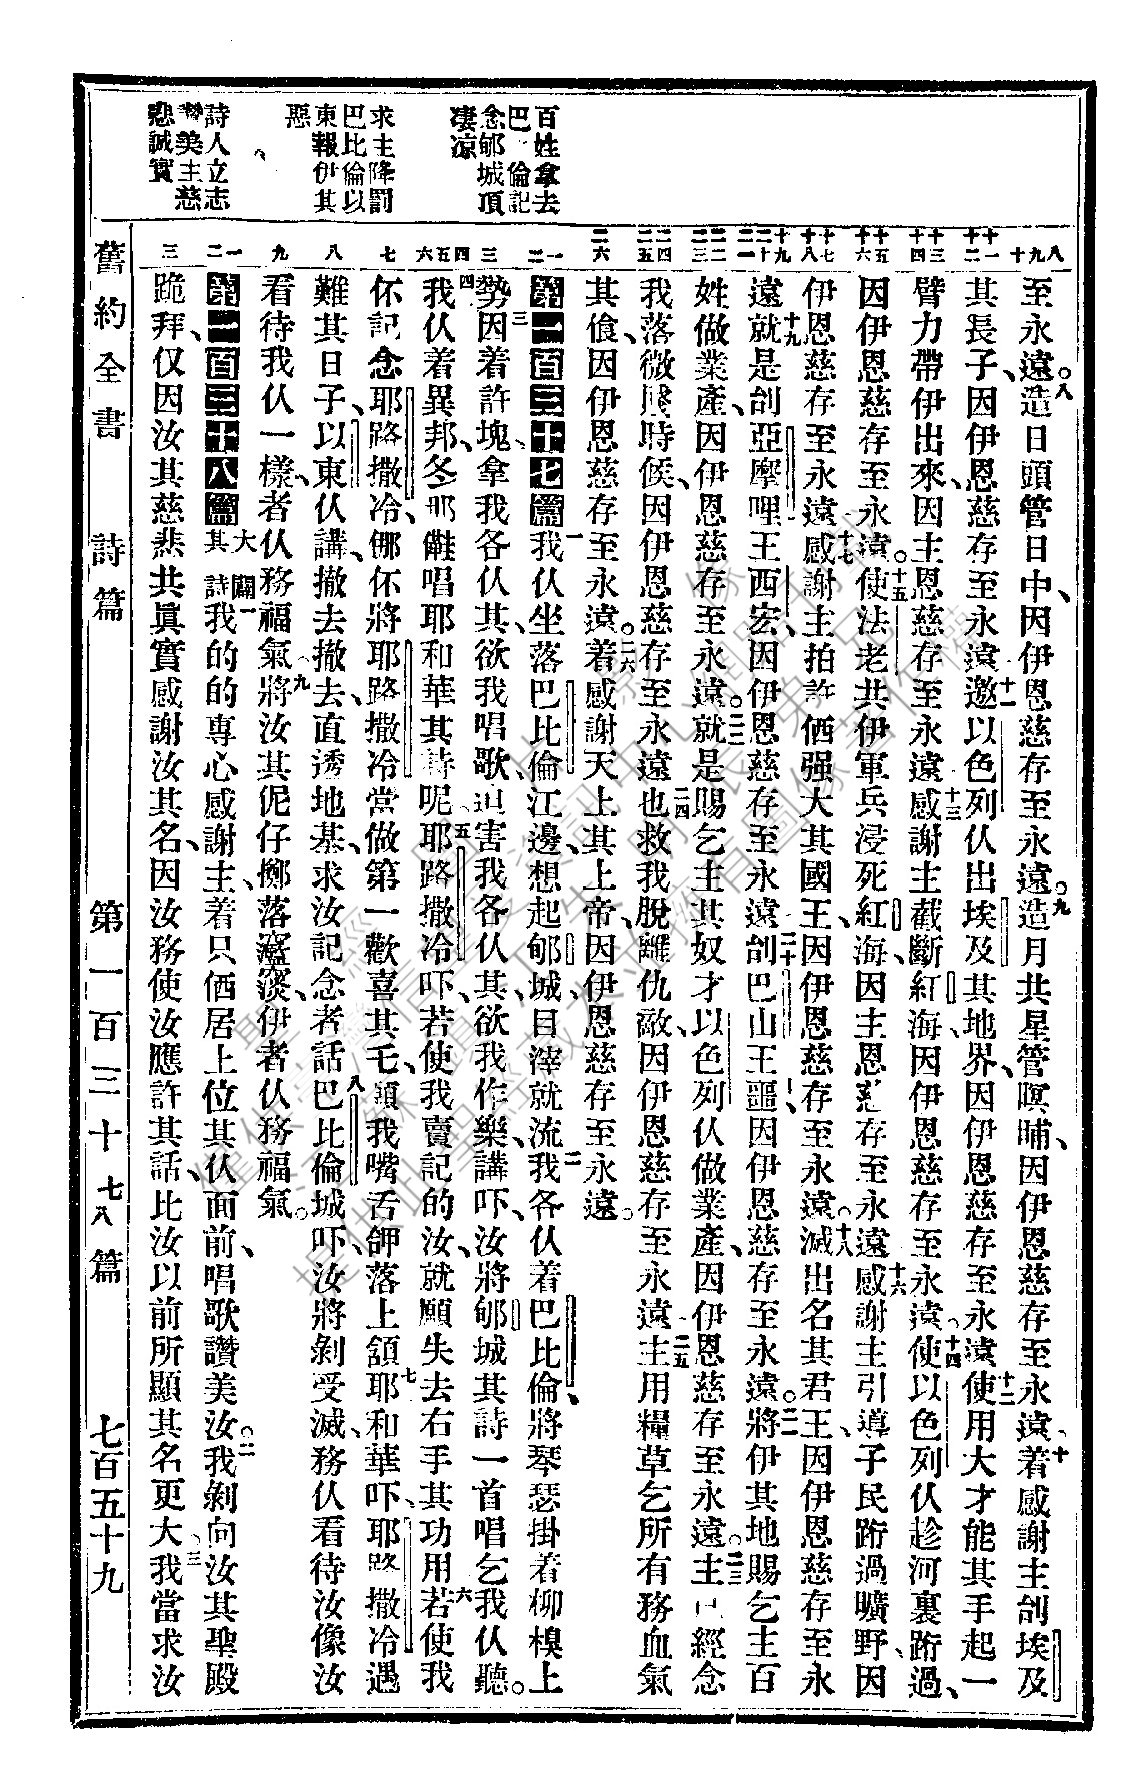 百姓拿去
巴比倫記
念郇城項
凄凉
求主降罰
巴比倫以
東報伊其
惡
詩人立志
讚美主慈
悲誠實
至永遠。八造日頭管日中、因伊恩慈存至永遠。九造月共星管暝晡、因伊恩慈存至永遠、十着感謝主刣埃及
其長子、因伊恩慈存至永遠、十一邀以色列仈出埃及其地界、因伊恩慈存至永遠、十二使用大才能其手起一
臂力帶伊出來、因主恩慈存至永遠、十三感謝主截斷紅海、因伊恩慈存至永遠、十四使以色列仈趁河裏跡過、
因伊恩慈存至永遠。十五使法老共伊軍兵浸死紅海、因主恩慈存至永遠、十六感謝主引導子民跡過曠野、因
伊恩慈存至永遠、十七感謝主拍許㑚强大其國王、因伊恩慈存至永遠。十八滅出名其君王、因伊恩慈存至永
遠、十九就是刣亞摩哩王西宏、因伊恩慈存至永遠、二十刣巴山王噩、因伊恩慈存至永遠。二一將伊其地賜乞主百
姓做業產、因伊恩慈存至永遠。二二就是賜乞主其奴才以色列仈做業產、因伊恩慈存至永遠。二三主已經念
我落微賤時候、因伊恩慈存至永遠、二四也救我脫離仇敵、因伊恩慈存至永遠、二五主用糧草乞所有務血氣
其飡、因伊恩慈存至永遠。二六着感謝天上其上帝、因伊恩慈存至永遠。
第一百三十七篇 一我仈坐落巴比倫江邊、想起郇城、目滓就流、二我各仈着巴比倫、將琴瑟掛着柳模上
勢、三因着許塊拿我各仈其、欲我唱歌、迫害我各仈其、欲我作樂、講吓、汝將郇城其詩一首唱乞我仈聽。
四我仈着異邦、冬那儺唱耶和華其詩呢、五耶路撒冷吓、若使我賣記的汝、就願失去右手其功用、六若使我
伓記念耶路撒冷、㑚伓將耶路撒冷當做第一歡喜其乇、願我嘴舌䏭落上頷、七耶和華吓、耶路撒冷遇
難其日子、以東仈講、撤去撤去、直透地基、求汝記念者話、八巴比倫城吓、汝將剝受滅、務仈看待汝像汝
看待我仈一樣、者仈務福氣、九將汝其伲仔擲落𥖁𥖁、伊者仈務福氣。
第一百三十八篇 大闢其詩 一我的的專心感謝主、着只㑚居上位其仈面前、唱歌讚美汝。二我剝向汝其聖殿
跪拜、仅因汝其慈悲共眞實感謝汝其名、因汝務使汝應許其話、比汝以前所顯其名更大、三我當求汝
舊約全書 詩篇 第一百三十七八篇 七百五十九